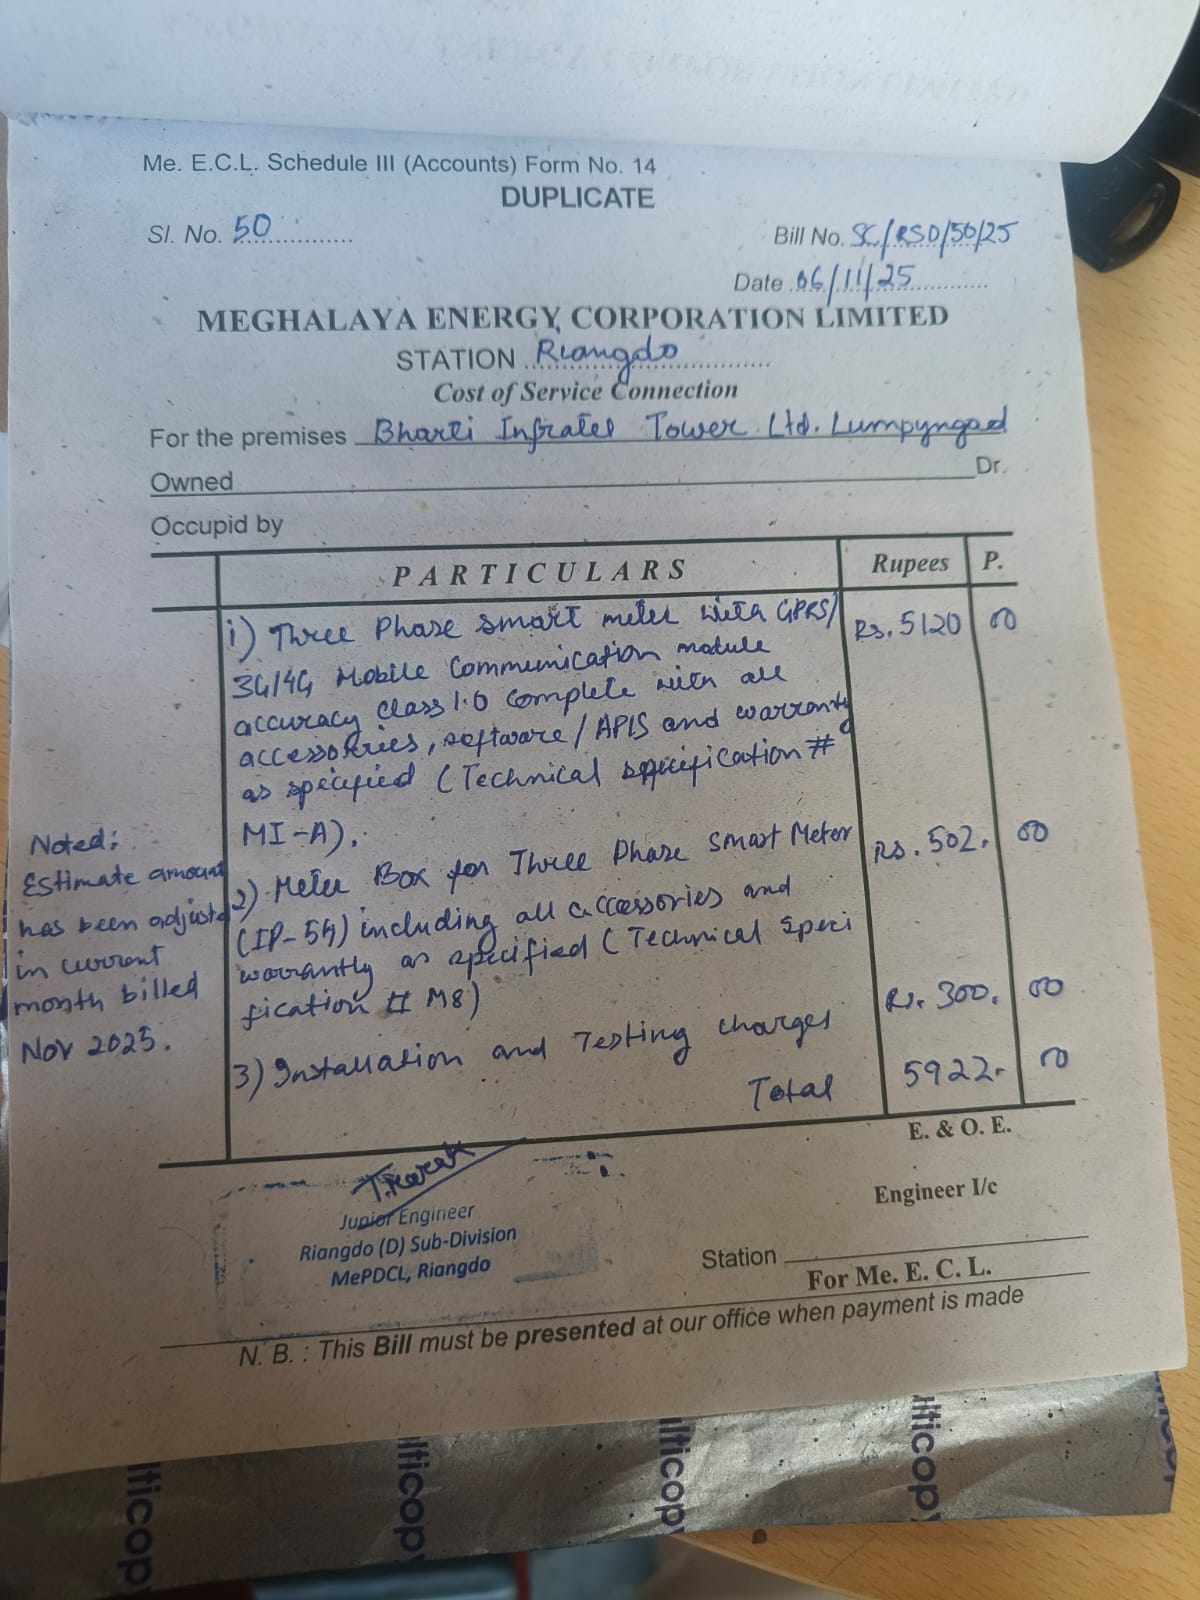 Me. E.C.L. Schedule III (Accounts) Form No. 14
DUPLICATE
Sl. No. 50
Bill No. SC/RSD/50/25
Date 06/11/25
MEGHALAYA ENERGY CORPORATION LIMITED
STATION Riangdo
Cost of Service Connection
For the premises Bharti Infratel Tower Ltd. Lumpyngad
Owned Dr.
Occupid by
PARTICULARS Rupees P.
i) Three Phase smart meter with GPRS/ Rs. 5120 00
3G/4G Mobile Communication module
accuracy class 1.0 complete with all
accessories, software/APIS and warranty
as specified (Technical specification #
MI-A).
2) Meter Box for Three Phase Smart Meter Rs. 502. 00
(IP-54) including all accessories and
warrantly as specified (Technical Speci
fication # M8)
3) Installation and Testing charges Rs. 300. 00
Total 5922- 00
Noted:
Estimate amount
has been adjuste
in current
month billed
Nov 2025.
E. & O. E.
Junior Engineer
Riangdo (D) Sub-Division
MePDCL, Riangdo
Engineer I/c
Station
For Me. E. C. L.
N. B. : This Bill must be presented at our office when payment is made
lticop
lticopy
lticopy
lticopy